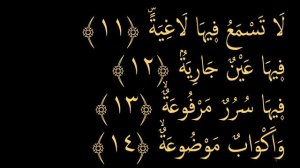 لَا تَسْمَعُ فِيهَا لَاغِيَةً ﴿١١﴾
فِيهَا عَيْنٌ جَارِيَةٌ ﴿١٢﴾
فِيهَا سُرُرٌ مَرْفُوعَةٌ ﴿١٣﴾
وَأَكْوَابٌ مَوْضُوعَةٌ ﴿١٤﴾